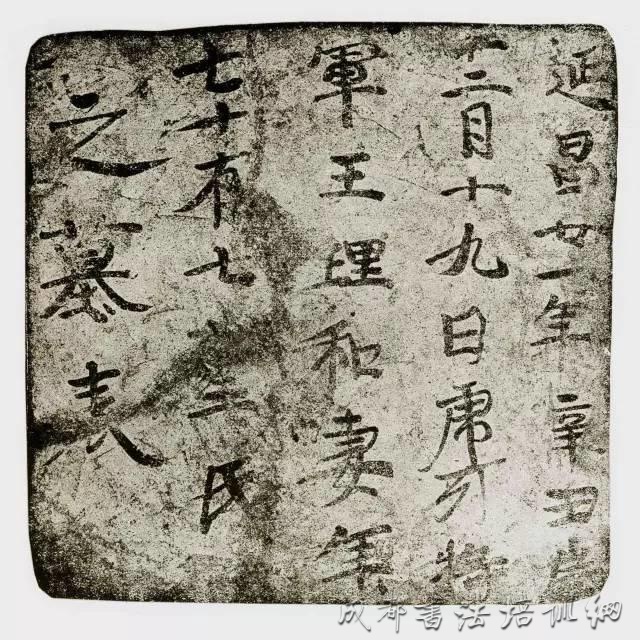 延昌廿一年辛丑歲
十二月十九日虎牙將
軍王理和妻年
七十有七氏
之墓表
成都書法培训網